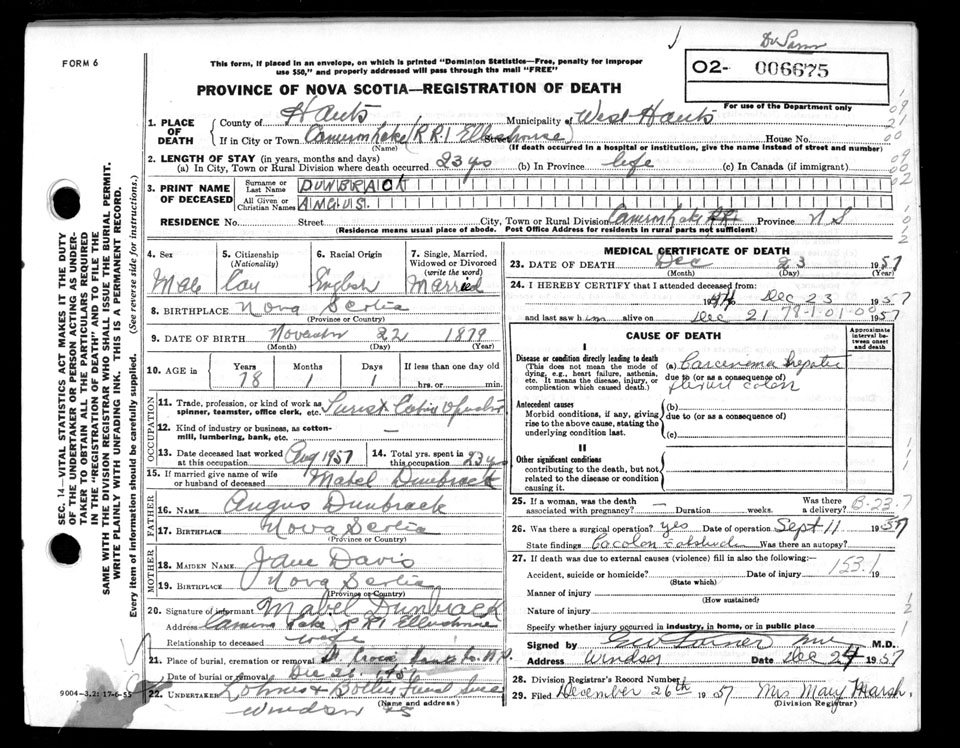 FORM 6
This form, if placed in an envelope, on which is printed "Dominion Statistics—Free, penalty for improper
use $50," and properly addressed will pass through the mail "FREE"
PROVINCE OF NOVA SCOTIA—REGISTRATION OF DEATH
02- 006675
For use of the Department only
1. PLACE OF DEATH
County of Hants Municipality of West Hants
If in City or Town (R R 1 Ellershouse) Street House No.
(Name) (If death occurred in a hospital or institution, give the name instead of street and number)
2. LENGTH OF STAY (in years, months and days)
(a) In City, Town or Rural Division where death occurred 23 yrs (b) In Province life (c) In Canada (if immigrant)
3. PRINT NAME OF DECEASED
Surname or Last Name DUNBRACK
All Given or Christian Names ANGUS.
RESIDENCE No. Street City, Town or Rural Division Lake RR1 Province N S
(Residence means usual place of abode. Post Office Address for residents in rural parts not sufficient)
4. Sex Male
5. Citizenship (Nationality) Can
6. Racial Origin English
7. Single, Married, Widowed or Divorced (write the word) Married
8. BIRTHPLACE Nova Scotia
(Province or Country)
9. DATE OF BIRTH November 22 1879
(Month) (Day) (Year)
10. AGE in Years 78 Months 1 Days 1 If less than one day old hrs. or min.
OCCUPATION
11. Trade, profession or kind of work as spinner, teamster, office clerk, etc. Tourist Cabin Operator
12. Kind of industry or business, as cotton-mill, lumbering, bank, etc. —
13. Date deceased last worked at this occupation Aug 1957
14. Total yrs. spent in this occupation 23 yrs
15. If married give name of wife or husband of deceased Mabel Dunbrack
FATHER
16. NAME Angus Dunbrack
17. BIRTHPLACE Nova Scotia
(Province or Country)
MOTHER
18. MAIDEN NAME Jane Davis
19. BIRTHPLACE Nova Scotia
(Province or Country)
20. Signature of informant Mabel Dunbrack
Address Lake RR1 Ellershouse
Relationship to deceased wife
21. Place of burial, cremation or removal St Croix Hants Co. N.S.
Date of burial or removal Dec 26 1957
22. UNDERTAKER
Windsor NS
(Name and address)
MEDICAL CERTIFICATE OF DEATH
23. DATE OF DEATH Dec 23 1957
(Month) (Day) (Year)
24. I HEREBY CERTIFY that I attended deceased from:
Dec 23 1957
and last saw him alive on Dec 21 1957
79-1-01-00
CAUSE OF DEATH
Approximate interval between onset and death
I
Disease or condition directly leading to death
(This does not mean the mode of dying, e.g., heart failure, asthenia, etc. It means the disease, injury, or complication which caused death.)
(a) Carcinoma hepatic
due to (or as consequence of)
colon
Antecedent causes
Morbid conditions, if any, giving rise to the above cause, stating the underlying condition last.
(b)
due to (or as consequence of)
(c)
II
Other significant conditions
contributing to the death, but not related to the disease or condition causing it.
25. If a woman, was the death associated with pregnancy? — Duration weeks. Was there a delivery?
B-23.7
26. Was there a surgical operation? yes Date of operation Sept 11 1957
State findings Ca colon Was there an autopsy?
27. If death was due to external causes (violence) fill in also the following:—
Accident, suicide or homicide? Date of injury 19
(State which)
153.1
Manner of injury
(How sustained)
Nature of injury
Specify whether injury occurred in industry, in home, or in public place
Signed by M.D.
Address Windsor Date Dec 24 1957
28. Division Registrar's Record Number
29. Filed December 26th 1957 Mrs Mary Marsh
(Division Registrar)
SEC. 14—VITAL STATISTICS ACT MAKES IT THE DUTY
OF THE UNDERTAKER OR PERSON ACTING AS UNDER-
TAKER TO OBTAIN ALL THE PARTICULARS REQUIRED
IN THE "REGISTRATION OF DEATH" AND TO FILE THE
SAME WITH THE DIVISION REGISTRAR WHO SHALL ISSUE THE BURIAL PERMIT.
WRITE PLAINLY WITH UNFADING INK. THIS IS A PERMANENT RECORD.
Every item of information should be carefully supplied. (See reverse side for instructions.)
9004-3.2: 17-6-55